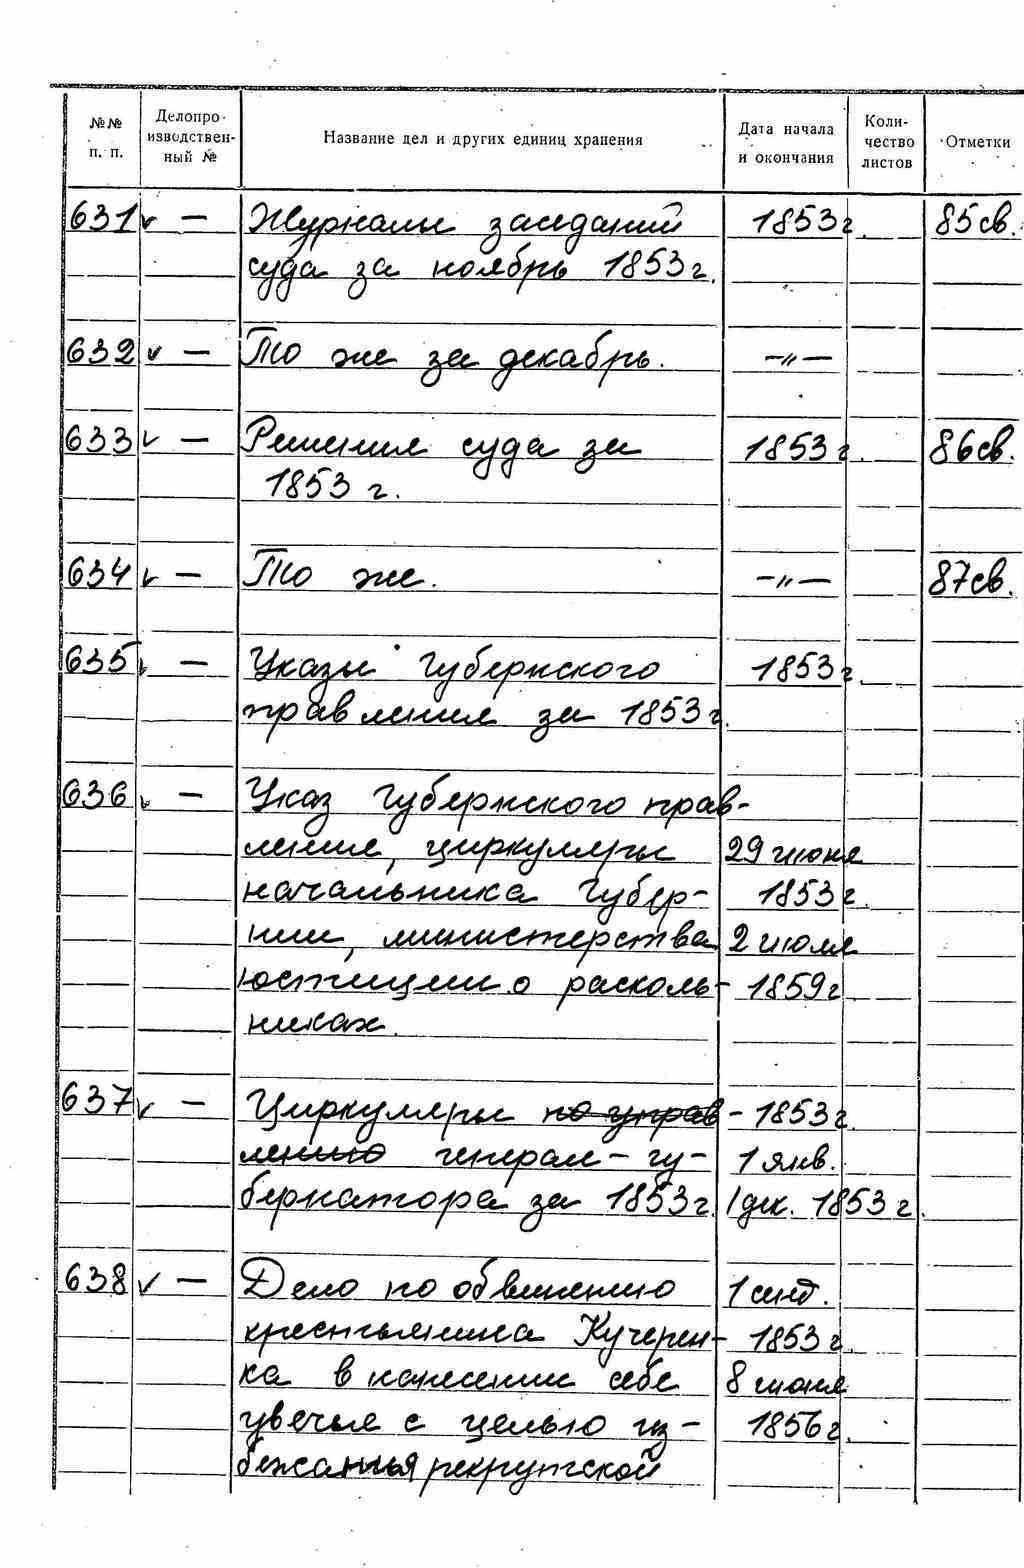 №№ п. п. Делопроизводственный № Название дел и других единиц хранения Дата начала и окончания Количество листов Отметки
631 ✓ — Журналы заседаний 1853 г. 85 св.
суда за ноябрь 1853 г.
632 ✓ — То же за декабрь. —„—
633 ✓ — Решения суда за 1853 г. 86 св.
1853 г.
634 ✓ — То же. —„— 87 св.
635 ✓ — Указы Губернского 1853 г.
правления за 1853 г.
636 ✓ — Указ Губернского прав-
ления, циркуляры 29 июня
начальника Губер- 1853 г.
нии, министерства 2 июля
юстиции о расколь- 1859 г
никах.
637 ✓ — Циркуляры по управ- 1853 г.
лению генерал-гу- 1 янв.
бернатора за 1853 г. 1 дек. 1853 г.
638 ✓ — Дело по обвинению 1 сент.
крестьянина Кучерен- 1853 г.
ка в нанесении себе 8 июня
увечья с целью из- 1856 г.
бежанья рекрутской